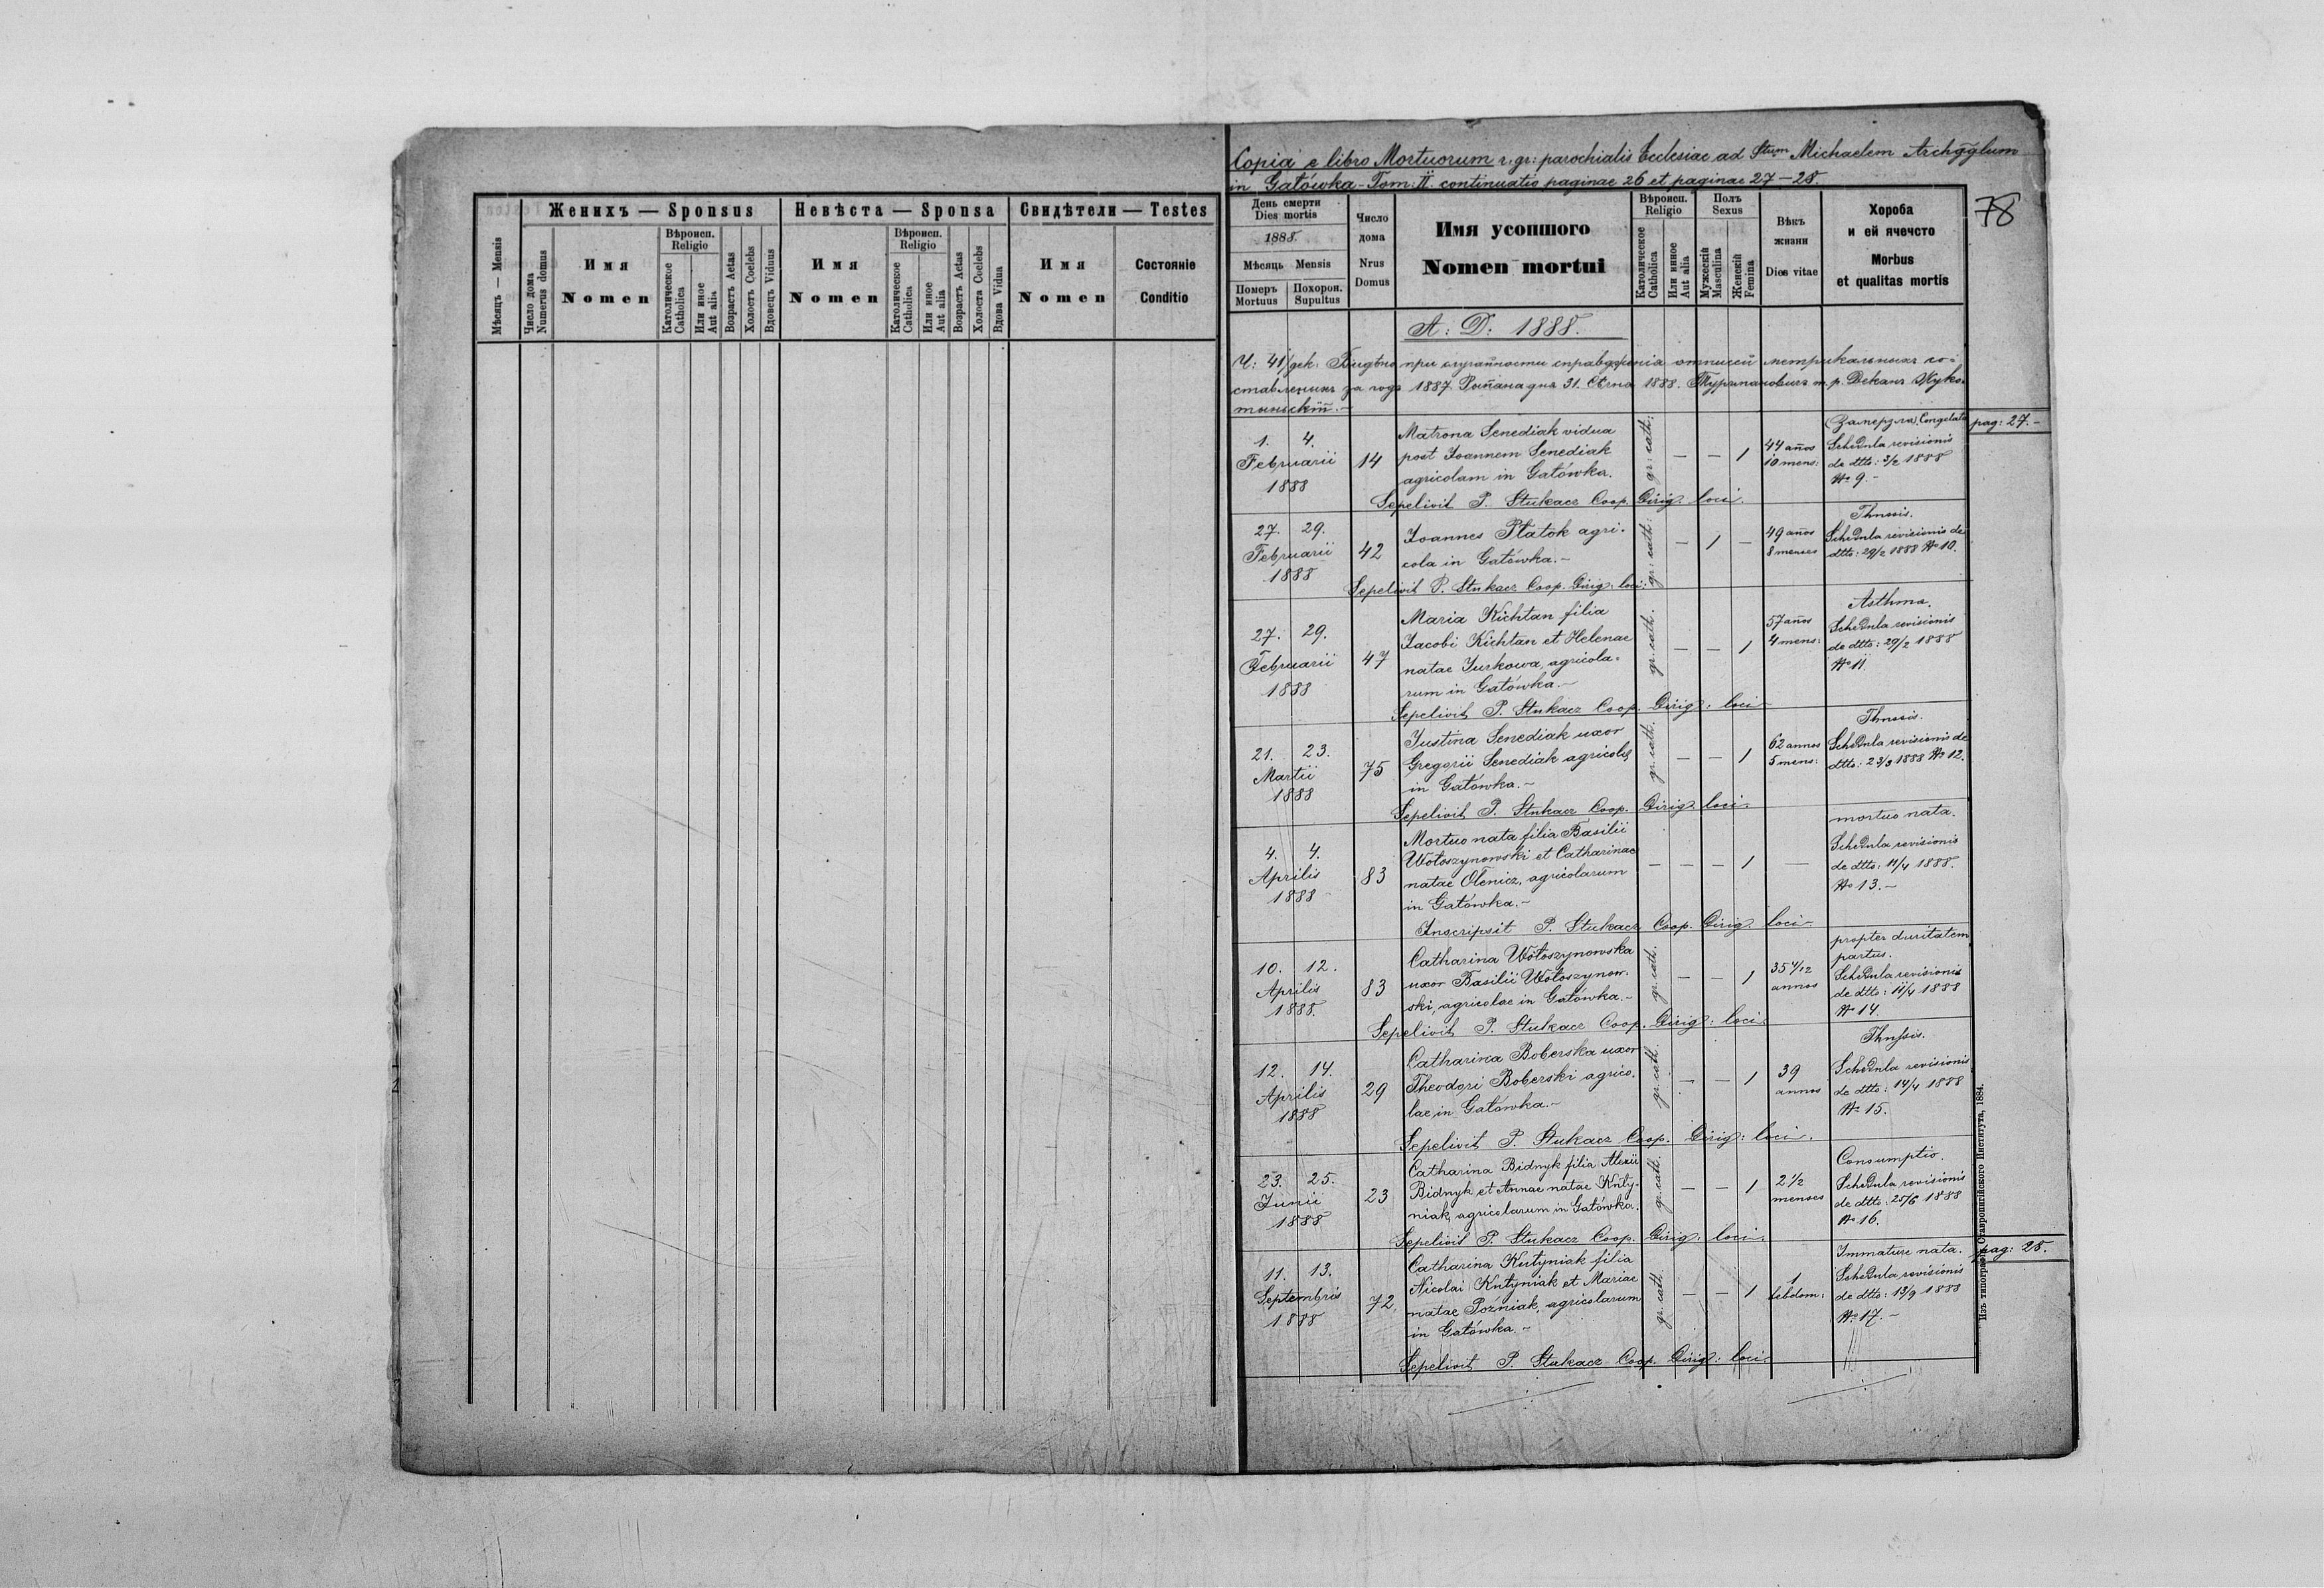 Женихъ — Sponsus
Невѣста — Sponsa
Свидѣтели — Testes
Мѣсяць — Mensis
Число дома
Numerus domus
Имя
Nomen
Вѣроисп.
Religio
Католическое
Catholica
Или иное
Aut alia
Возрастъ Aetas
Холостъ Coelebs
Вдовецъ Viduus
Имя
Nomen
Вѣроисп.
Religio
Католическое
Catholica
Или иное
Aut alia
Возрастъ Aetas
Холоста Coelebs
Вдова Vidua
Имя
Nomen
Состояніе
Conditio
Copia e libro Mortuorum r. gr: parochialis Ecclesiae ad Stum Michaelem Archgglum
in Gatówka - Tom: II. continuatio paginae 26 et paginae 27 - 28.
78
День смерти
Dies mortis
1888.
Мѣсяць Mensis
Померъ
Mortuus
Похорон.
Supultus
Число
дома
Nrus
Domus
Имя усопшого
Nomen mortui
Вѣроисп.
Religio
Католическое
Catholica
Или иное
Aut alia
Полъ
Sexus
Мужескій
Masculina
Женскій
Femina
Вѣкъ
жизни
Dies vitae
Хороба
и ей ячечсто
Morbus
et qualitas mortis
A: D: 1888.
Ч: 41/дек. Видѣно при случайности справдженія отписей метрикальныхъ со-
ставленыхъ за годъ 1887. дня 31. 1888. Деканъ Жуко-
тыньскій. -
pag: 27. -
1. 4.
Februarii
1888
14
Matrona Senediak vidua
post Joannem Senediak
agricolam in Gatówka.
gr: cath:
— — 1
44 años
10 mens:
(Замерзла) Congelata
Schedula revisionis
de dtto: 3/2 1888
No 9. -
Sepelivit P. Stukacz Coop. Dirig. loci.
27. 29.
Februarii
1888
42
Joannes Płatok agri-
cola in Gatówka. -
gr: cath:
— 1 —
49 años
8 menses
Thnosis.
Schedula revisionis de
dtto: 29/2 1888 No 10.
Sepelivit P. Stukacz Coop. Dirig: loci:
27. 29.
Februarii
1888
47
Maria Kichtan filia
Jacobi Kichtan et Helenae
natae Jurkowa, agricola-
rum in Gatówka. -
gr: cath:
— — 1
57 años
4 mens:
Asthma.
Schedula revisionis
de dtto: 29/2 1888
No 11.
Sepelivit P. Stukacz Coop. Dirig: loci
21. 23.
Martii
1888
75
Justina Senediak uxor
Gregorii Senediak agricolae
in Gatówka. -
gr: cath:
— — 1
62 annos
5 mens:
Thnosis.
Schedula revisionis de
dtto: 23/3 1888 No 12.
Sepelivit P. Stukacz Coop. Dirig. loci.
4. 4.
Aprilis
1888
83
Mortuo nata filia Basilii
Wołoszynowski et Catharinae
natae Olenicz, agricolarum
in Gatówka. -
— — — 1 —
mortuo nata.
Schedula revisionis
de dtto: 11/4 1888.
No 13. -
Inscripsit P. Stukacz Coop. Dirig. loci
10. 12.
Aprilis
1888.
83
Catharina Wołoszynowska
uxor Basilii Wołoszynow-
ski, agricolae in Gatówka. -
gr: cath:
— — 1
35 4/12
annos
propter duritatem
partus.
Schedula revisionis
de dtto: 11/4 1888
No 14.
Sepelivit P. Stukacz Coop. Dirig: loci.
12. 14.
Aprilis
1888
29
Catharina Boberska uxor
Theodori Boberski agrico-
lae in Gatówka. -
gr: cath:
— — 1
39
annos
Thnssis.
Schedula revisionis
de dtto: 14/4 1888
No 15.
Sepelivit P. Stukacz Coop. Dirig: loci.
23. 25.
Junii
1888
23
Catharina Bidnyk filia Alexii
Bidnyk et Annae natae Knty-
niak, agricolarum in Gatówka.
gr: cath:
— — 1
2 1/2
menses
Consumptio.
Schedula revisionis
de dtto: 25/6 1888
No 16.
Sepelivit P. Stukacz Coop. Dirig. loci.
pag: 28.
11. 13.
Septembris
1888
72.
Catharina Kntyniak filia
Nicolai Kntyniak et Mariae
natae Poźniak, agricolarum
in Gatówka. -
gr: cath:
— — 1
1
hebdom:
Immature nata.
Schedula revisionis
de dtto: 13/9 1888
No 17. -
Sepelivit P. Stukacz Coop. Dirig: loci
Изъ типографіи Ставропигійского Института, 1884.